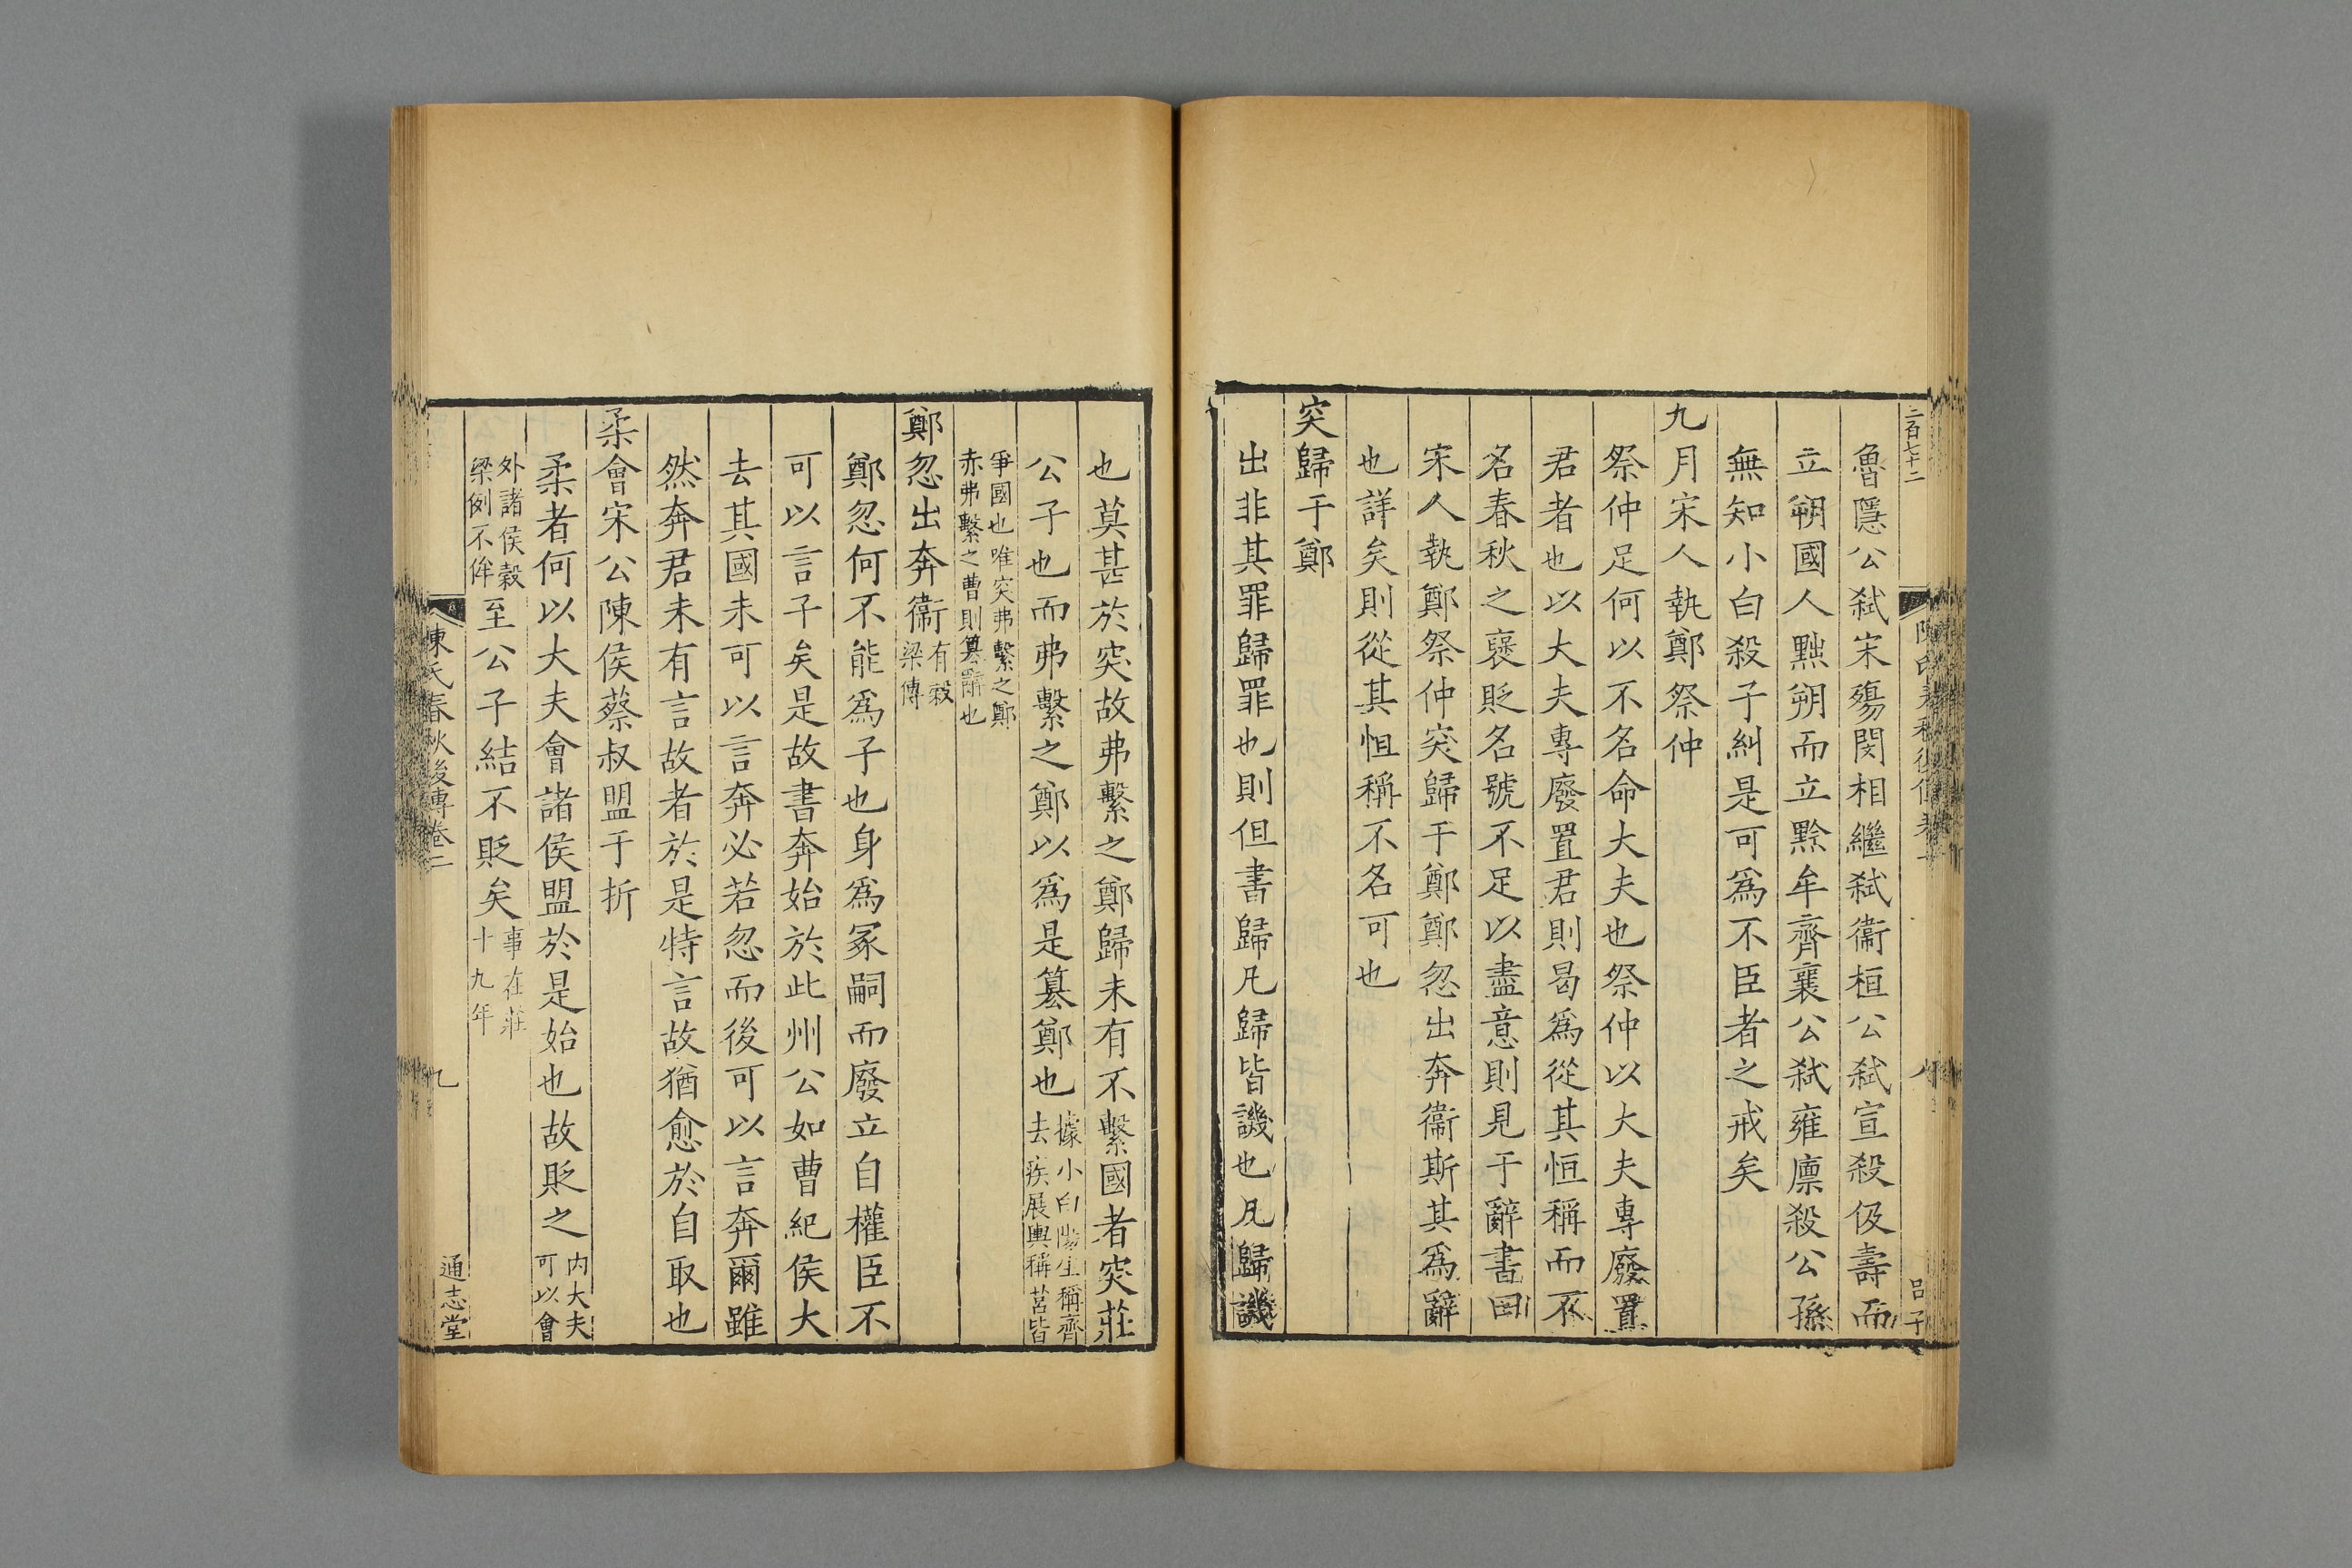 二百七十二
魯隱公弑宋殤閔相繼弑衞桓公弑宣殺伋壽而
立朔國人黜朔而立黔牟齊襄公弑雍廪殺公孫
無知小白殺子糾是可爲不臣者之戒矣
九月宋人執鄭祭仲
祭仲足何以不名命大夫也祭仲以大夫專廢置
君者也以大夫專廢置君則曷爲從其恒稱而不
名春秋之襃貶名號不足以盡意則見于辭書曰
宋人執鄭祭仲突歸于鄭鄭忽出奔衞斯其爲辭
也詳矣則從其恒稱不名可也
突歸于鄭
出非其罪歸罪也則但書歸凡歸皆譏也凡歸譏
八
呂子
也莫甚於突故弗繫之鄭歸未有不繫國者突莊
公子也而弗繫之鄭以爲是簒鄭也據小白陽生稱齊
去疾展輿稱莒皆
爭國也唯突弗繫之鄭
赤弗繫之曹則簒辭也
鄭忽出奔衞有穀
梁傳
鄭忽何不能爲子也身爲冢嗣而廢立自權臣不
可以言子矣是故書奔始於此州公如曹紀侯大
去其國未可以言奔必若忽而後可以言奔爾雖
然奔君未有言故者於是特言故猶愈於自取也
柔會宋公陳侯蔡叔盟于折
柔者何以大夫會諸侯盟於是始也故貶之内大夫
可以會
外諸侯穀
梁例不侔至公子結不貶矣事在莊
十九年
陳氏春秋後傳卷二
九
通志堂